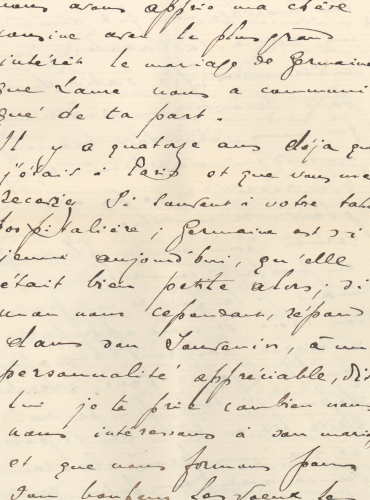 nous avons appris ma chère
cousine avec le plus grand
intérêt le mariage de Germaine
que Laure nous a communi
qué de ta part.
Il y a quatorze ans déja qu
j'étais à Paris et que vous me
receviez si souvent à votre tabl
hospitalière ; Germaine est si
jeune aujourd'hui, qu'elle
était bien petite alors ; si
mon nom cependant, répond
dans son souvenir, à un
personnalité appréciable, dis
lui je te prie combien nous
nous intéressons à son maria
et que nous formons pour
son bonheur les voeux le